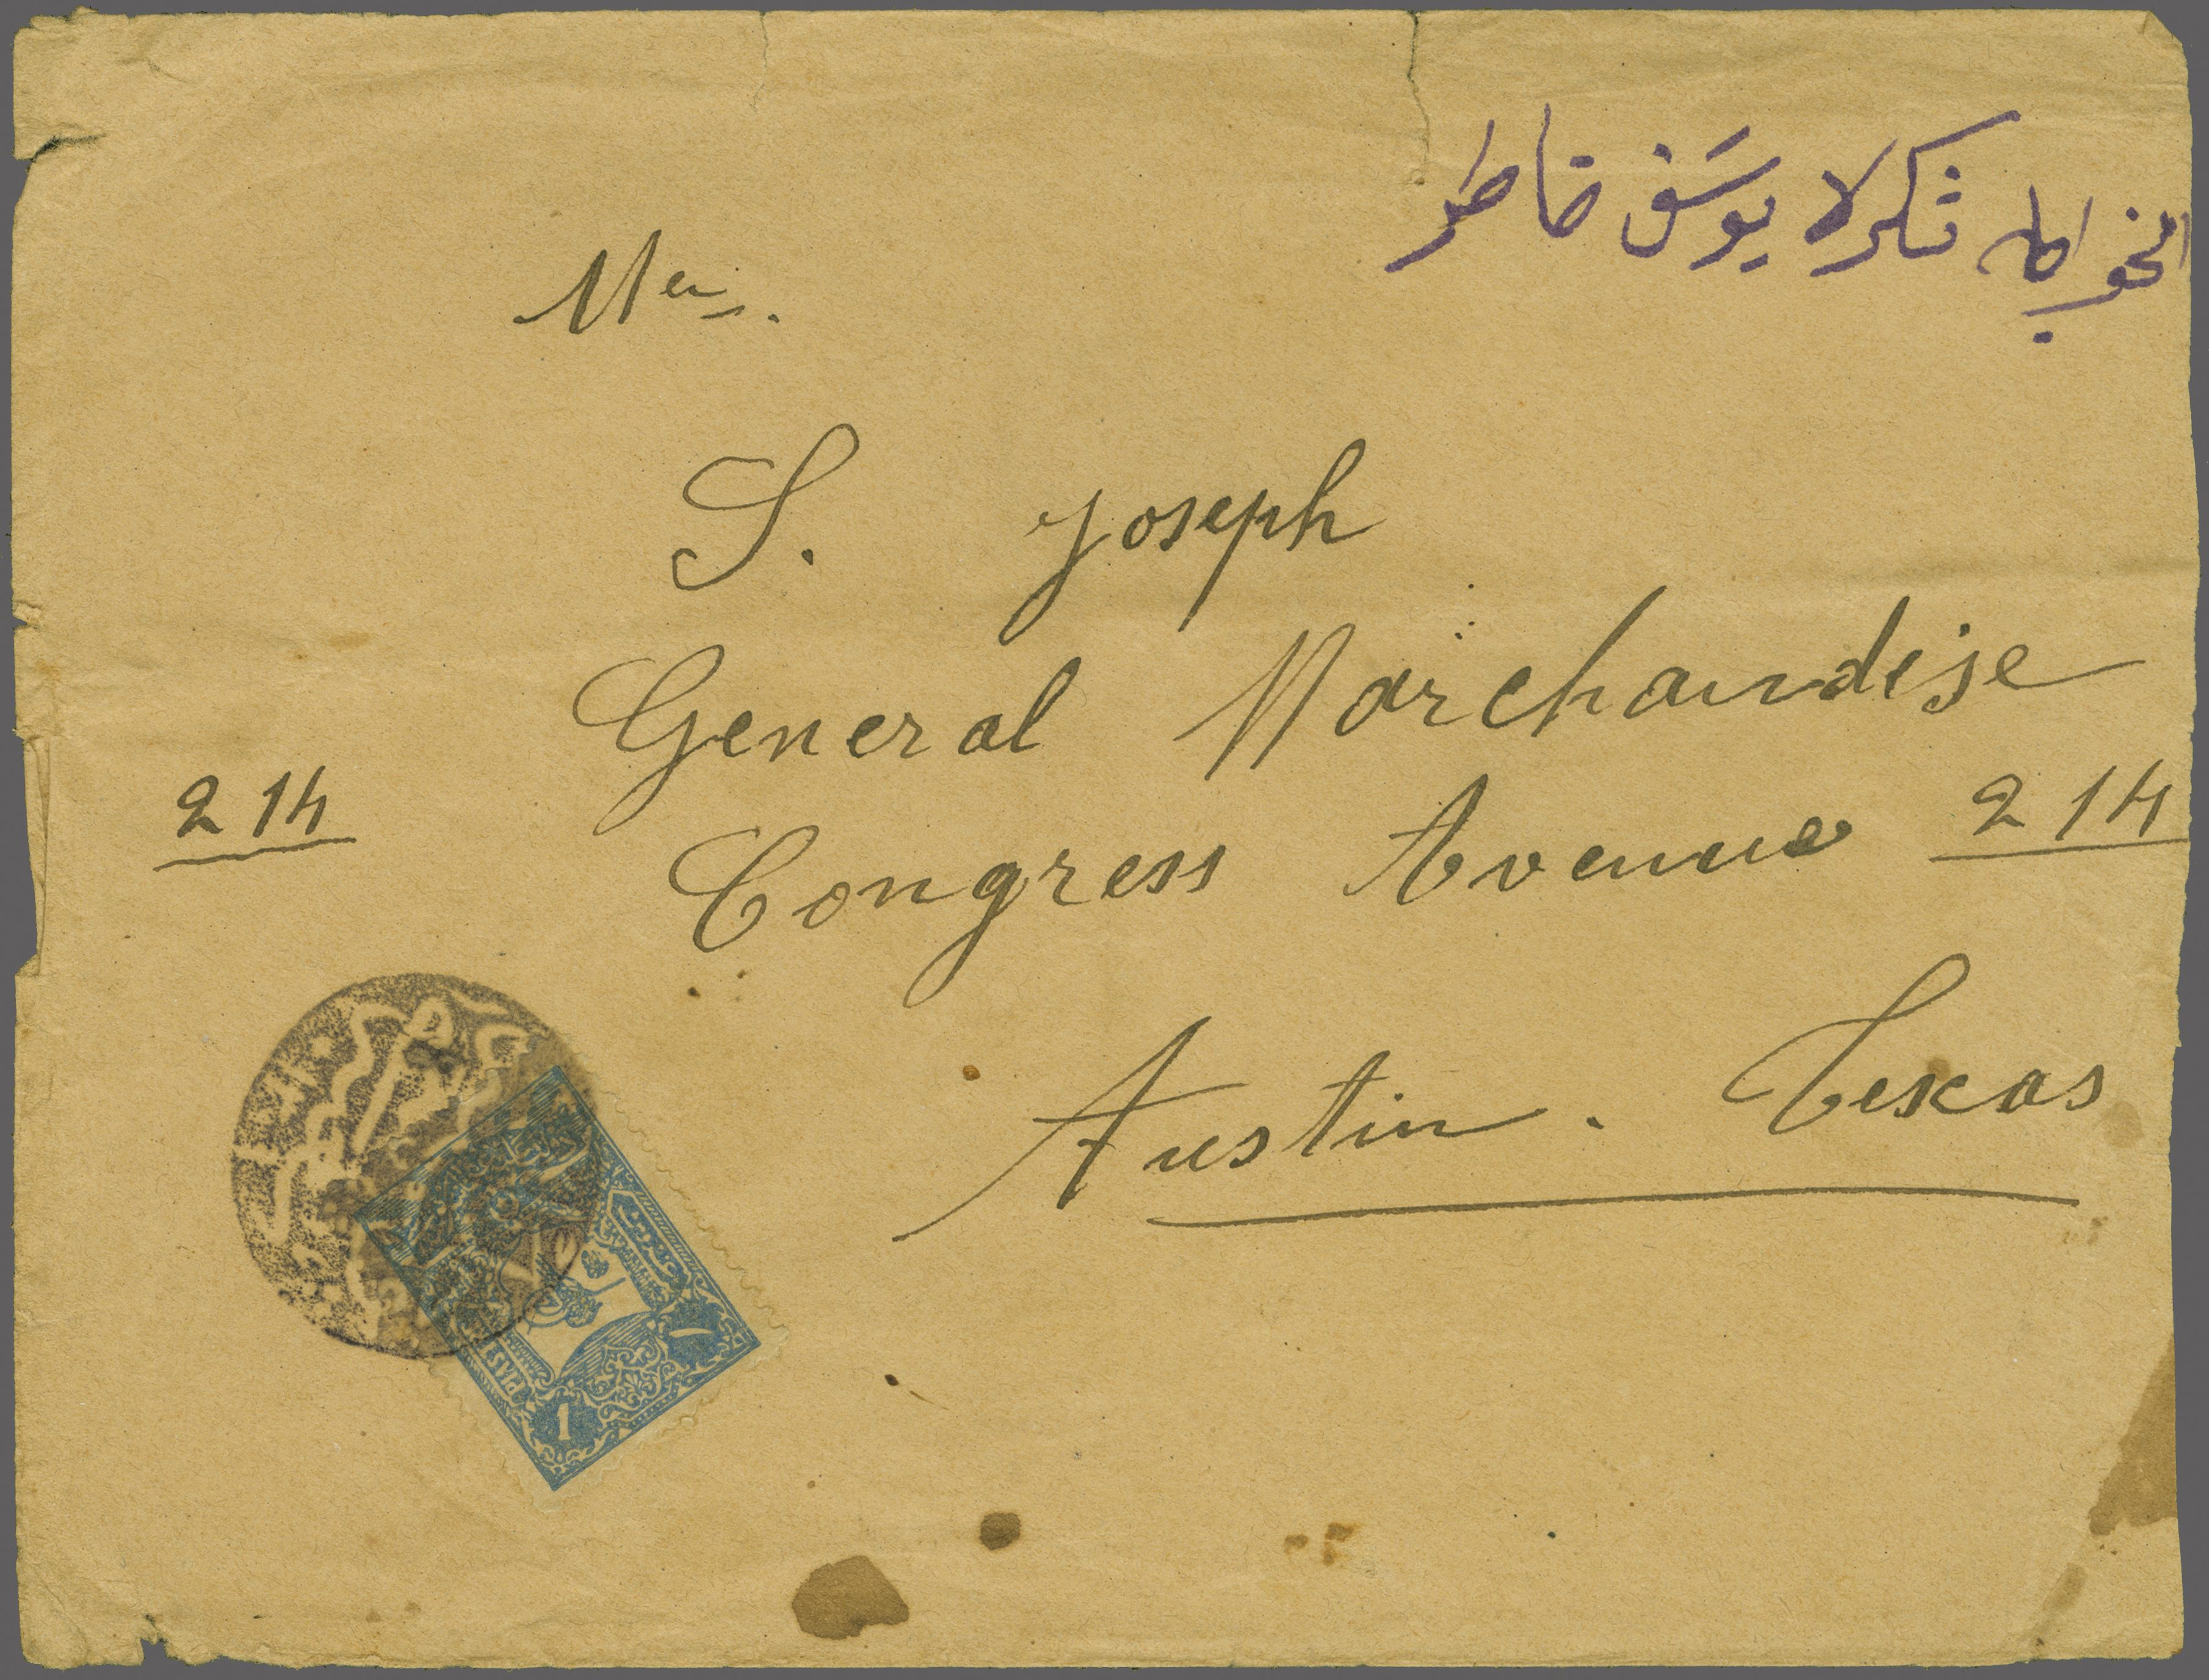 الخواجه شكرلا يوسف خاطر
Mer.
S. Joseph
General Marchandise
214 Congress Avenue 214
Austin. Texas
PIAST
1